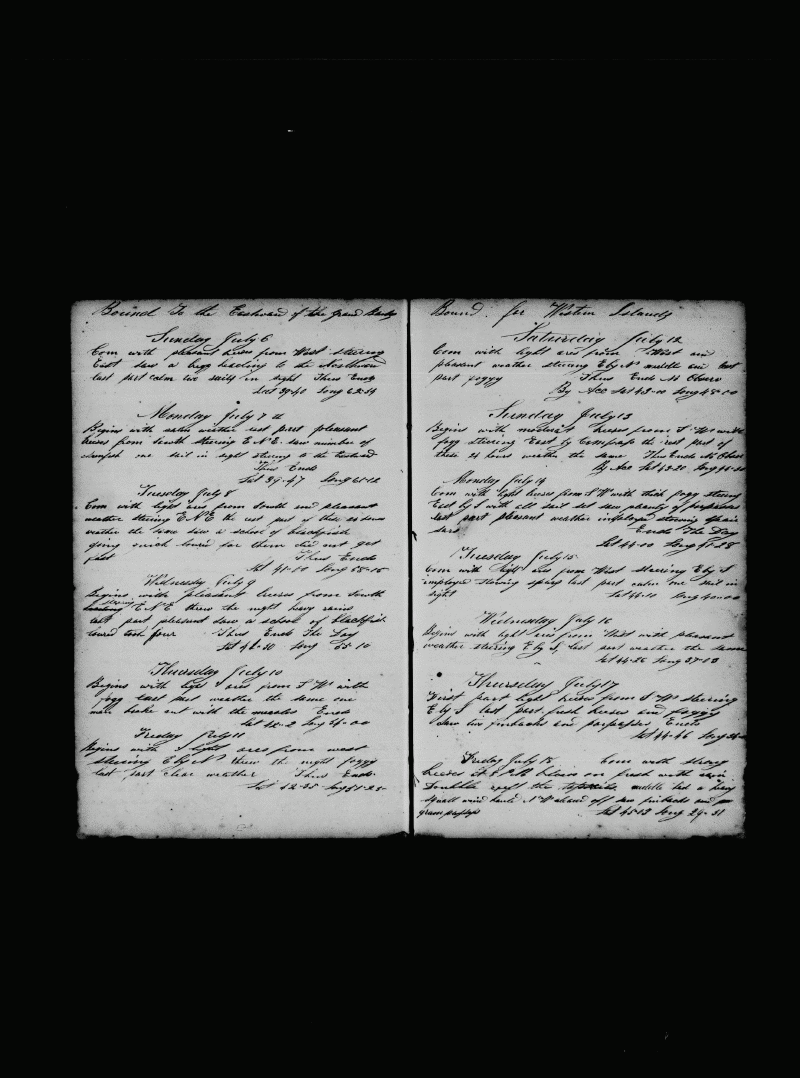 Bound To the Eastward of the Grand Banks
Sunday July 6
Com with pleasant breses from West steering
East saw a brigg heading to the Northward
last part calm two sails in sight Thus Ends
Lat 39-40 Long 62-54
Monday July 7 th
Begins with calm weather last part pleasant
breses from South steering E N E saw number of
one sail in sight steering to the Eastward
Thus Ends
Lat 39-47 Long 61-12
Tuesday July 8
Com with light ares from South and pleasant
weather steering E N E the rest part of this 24 hours
weather the same saw a school of blackfish
going quick lowrd for them did not get
fast Thus Ends
Lat 41-10 Long 58-15
Wednesday July 9
Begins with pleasant breses from South
steering E N E threw the night heavy rains
last part pleasant saw a school of blackfish
lowrd took four Thus Ends The Day
Lat 41-30 Long 55-10
Thursday July 10
Begins with light ares from S W with
fogg last part weather the same one
man broke out with the measles Ends
Lat 42-2 Long 54-00
Friday July 11
Begins with light ares from west
steering E by N threw the night foggy
last part clear weather Thus Ends
Lat 42-35 Long 51-25
Bound for Western Islands
Saturday July 12
Com with light ares from West and
pleasant weather steering E by N middle and last
part foggy Thus Ends No Obers
By Aco Lat 43-00 Long 48-00
Sunday July 13
Begins with moderate breses from S W with
fogg steering East by Compass the rest part of
these 24 hours weather the same Thus Ends No Obser
By Aco Lat 43-20 Long
Monday July 14
Com with light breses from S W with thick fogg steering
East by S with all sail set saw plenty of porpoises
last part pleasant weather imployed stowing
Ends The Day
Lat 44-00 Long
Tuesday July 15
Com with light ares from West stearing E by S
imployed stowing last part calm one sail in
sight Lat 44-10 Long 40-00
Wednesday July 16
Begins with light ares from West with pleasant
weather steering E by S last part weather the same
Lat 44-26 Long 37-13
Thursday July 17
First part light breses from S W steering
E by S last part fresh breses and foggy
Saw two finbacks and porpoises Ends
Lat 44-46 Long
Friday July 18 Com with strong
breses at 8 P M blown on fresh with rain
Doubble reeft the topsails middle had a heavy
squall wind hauld N W saw finbacks and
grampuses Lat 45-13 Long 29-31